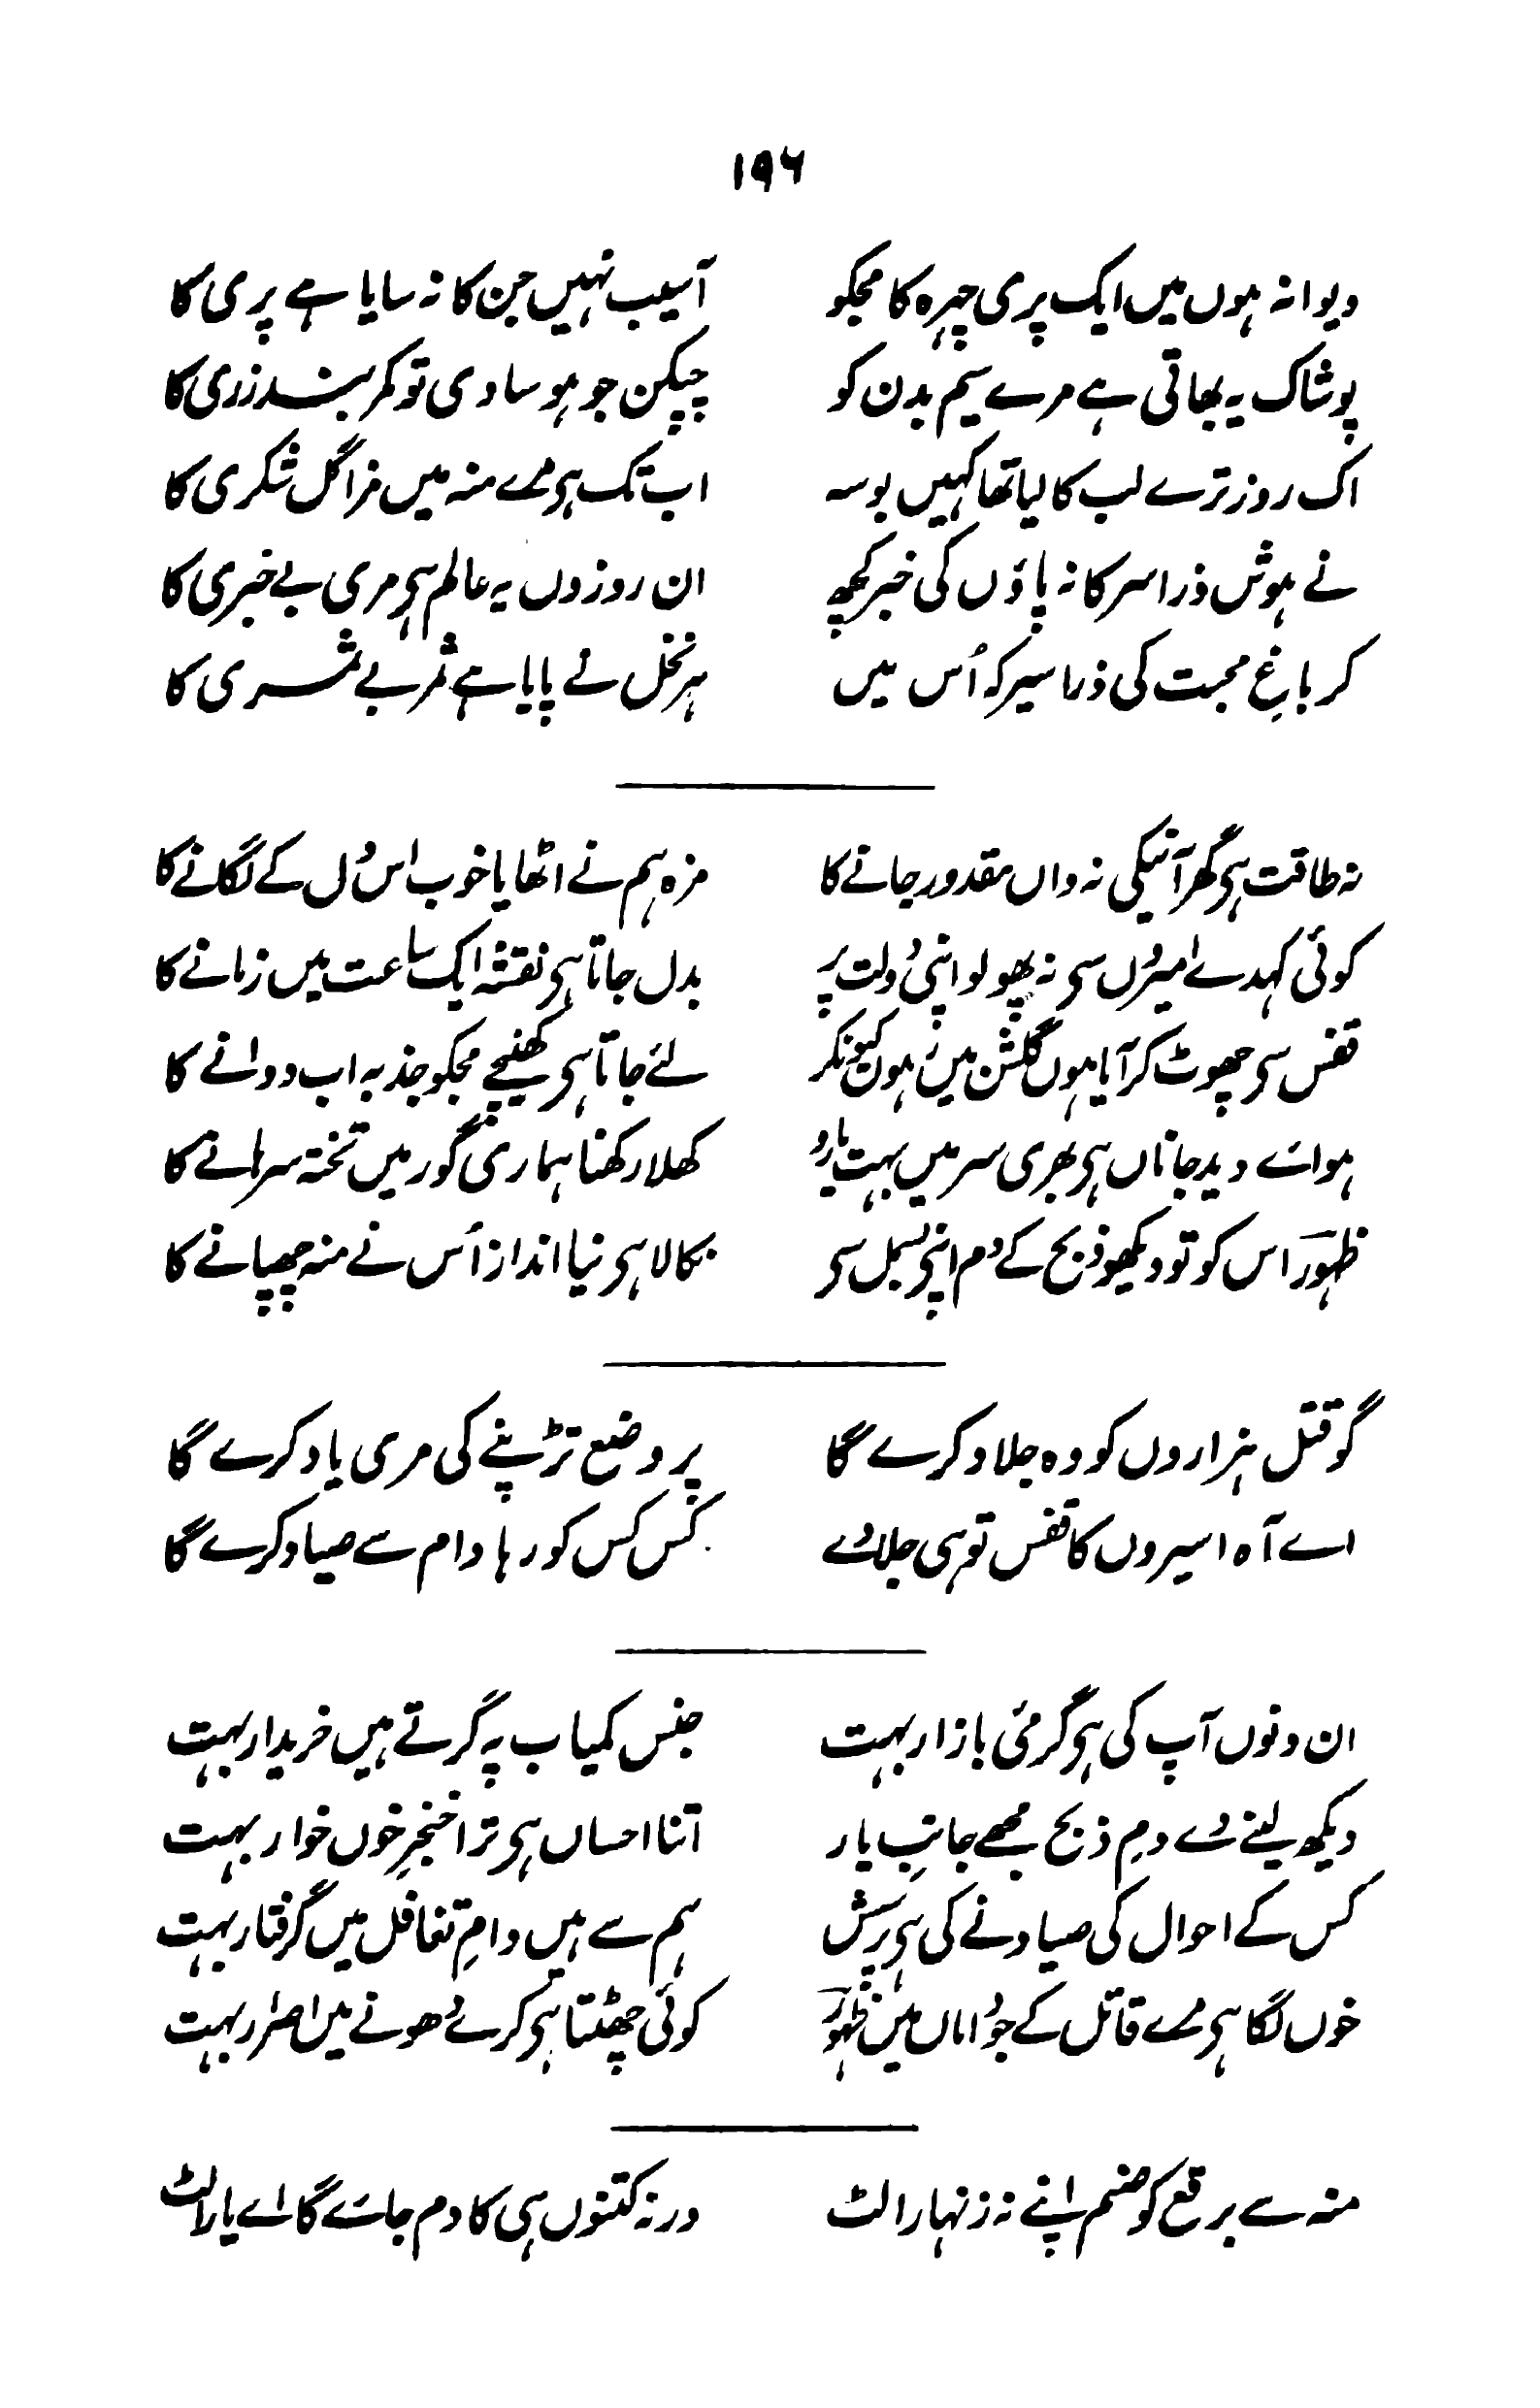 ۱۹۶
دیوانہ ہوں میں ایک پری چہرہ کا مجکو آسیب نہیں جن کا نہ سایا ہے پری کا
پوشاک یہ بھاتی ہے مرے سیم بدن کو چپکن جو ہو سادی تو کمر بند زری کا
اک روز ترے لب کا لیا تھا کہیں بوسہ اب تک ہی مرے منہ میں مزا گل شکری کا
نے ہوش ذرا سر کا نہ پاؤں کی خبر کچھ ان روزوں یہ عالم ہی مری بے خبری کا
کر باغِ محبت کی ذرا سیر کہ اُس میں ہر نخل نے پایا ہے ثمر بے ثمری کا
نہ طاقت ہی گھر آنیکی نہ واں مقدور جانے کا مزہ ہم نے اٹھایا خوب اس دل کے لگانے کا
کوئی کہدے امیروں سی نہ پھولو اپنی دولت پر بدل جاتا ہی نقشہ ایک ساعت میں زمانے کا
قفس سی چھوٹ کر آیا ہوں گلشن میں نہ ہوں کیونکر لئے جاتا ہی کھینچے مجکو جذبہ اب و دانے کا
ہوائے دید جاناں ہی بھری سر میں بہت یارو کھلا رکھنا ہماری گور میں تختہ سرہانے کا
ظہورؔ اس کو تو دیکھو ذبح کے دم اپنی بسمل سی نکالا ہی نیا انداز اُس نے منہ چھپانے کا
گو قتل ہزاروں کو وہ جلاد کرے گا پر وضع تڑپنے کی مری یاد کرے گا
اے آہ اسیروں کا قفس تو ہی جلا دے کس کس کو رہا دام سے صیاد کرے گا
ان دنوں آپ کی ہی گرمئی بازار بہت جنس کمیاب پہ گرتے ہیں خریدار بہت
دیکھ لینے دے دمِ ذبح مجھے جانبِ یار اتنا احساں ہی ترا خنجرِ خوں خوار بہت
کس کے احوال کی صیاد نے کی ہی پرسش ہم سے ہیں دامِ تغافل میں گرفتار بہت
خوں لگا ہی مرے قاتل کے جو داماں میں ظہورؔ کوئی چھٹتا ہی کرے دھونے میں اصرار بہت
منہ سے برقع کو صنم اپنے نہ زنہار الٹ ورنہ کتنوں ہی کا دم جائے گا اے یار الٹ